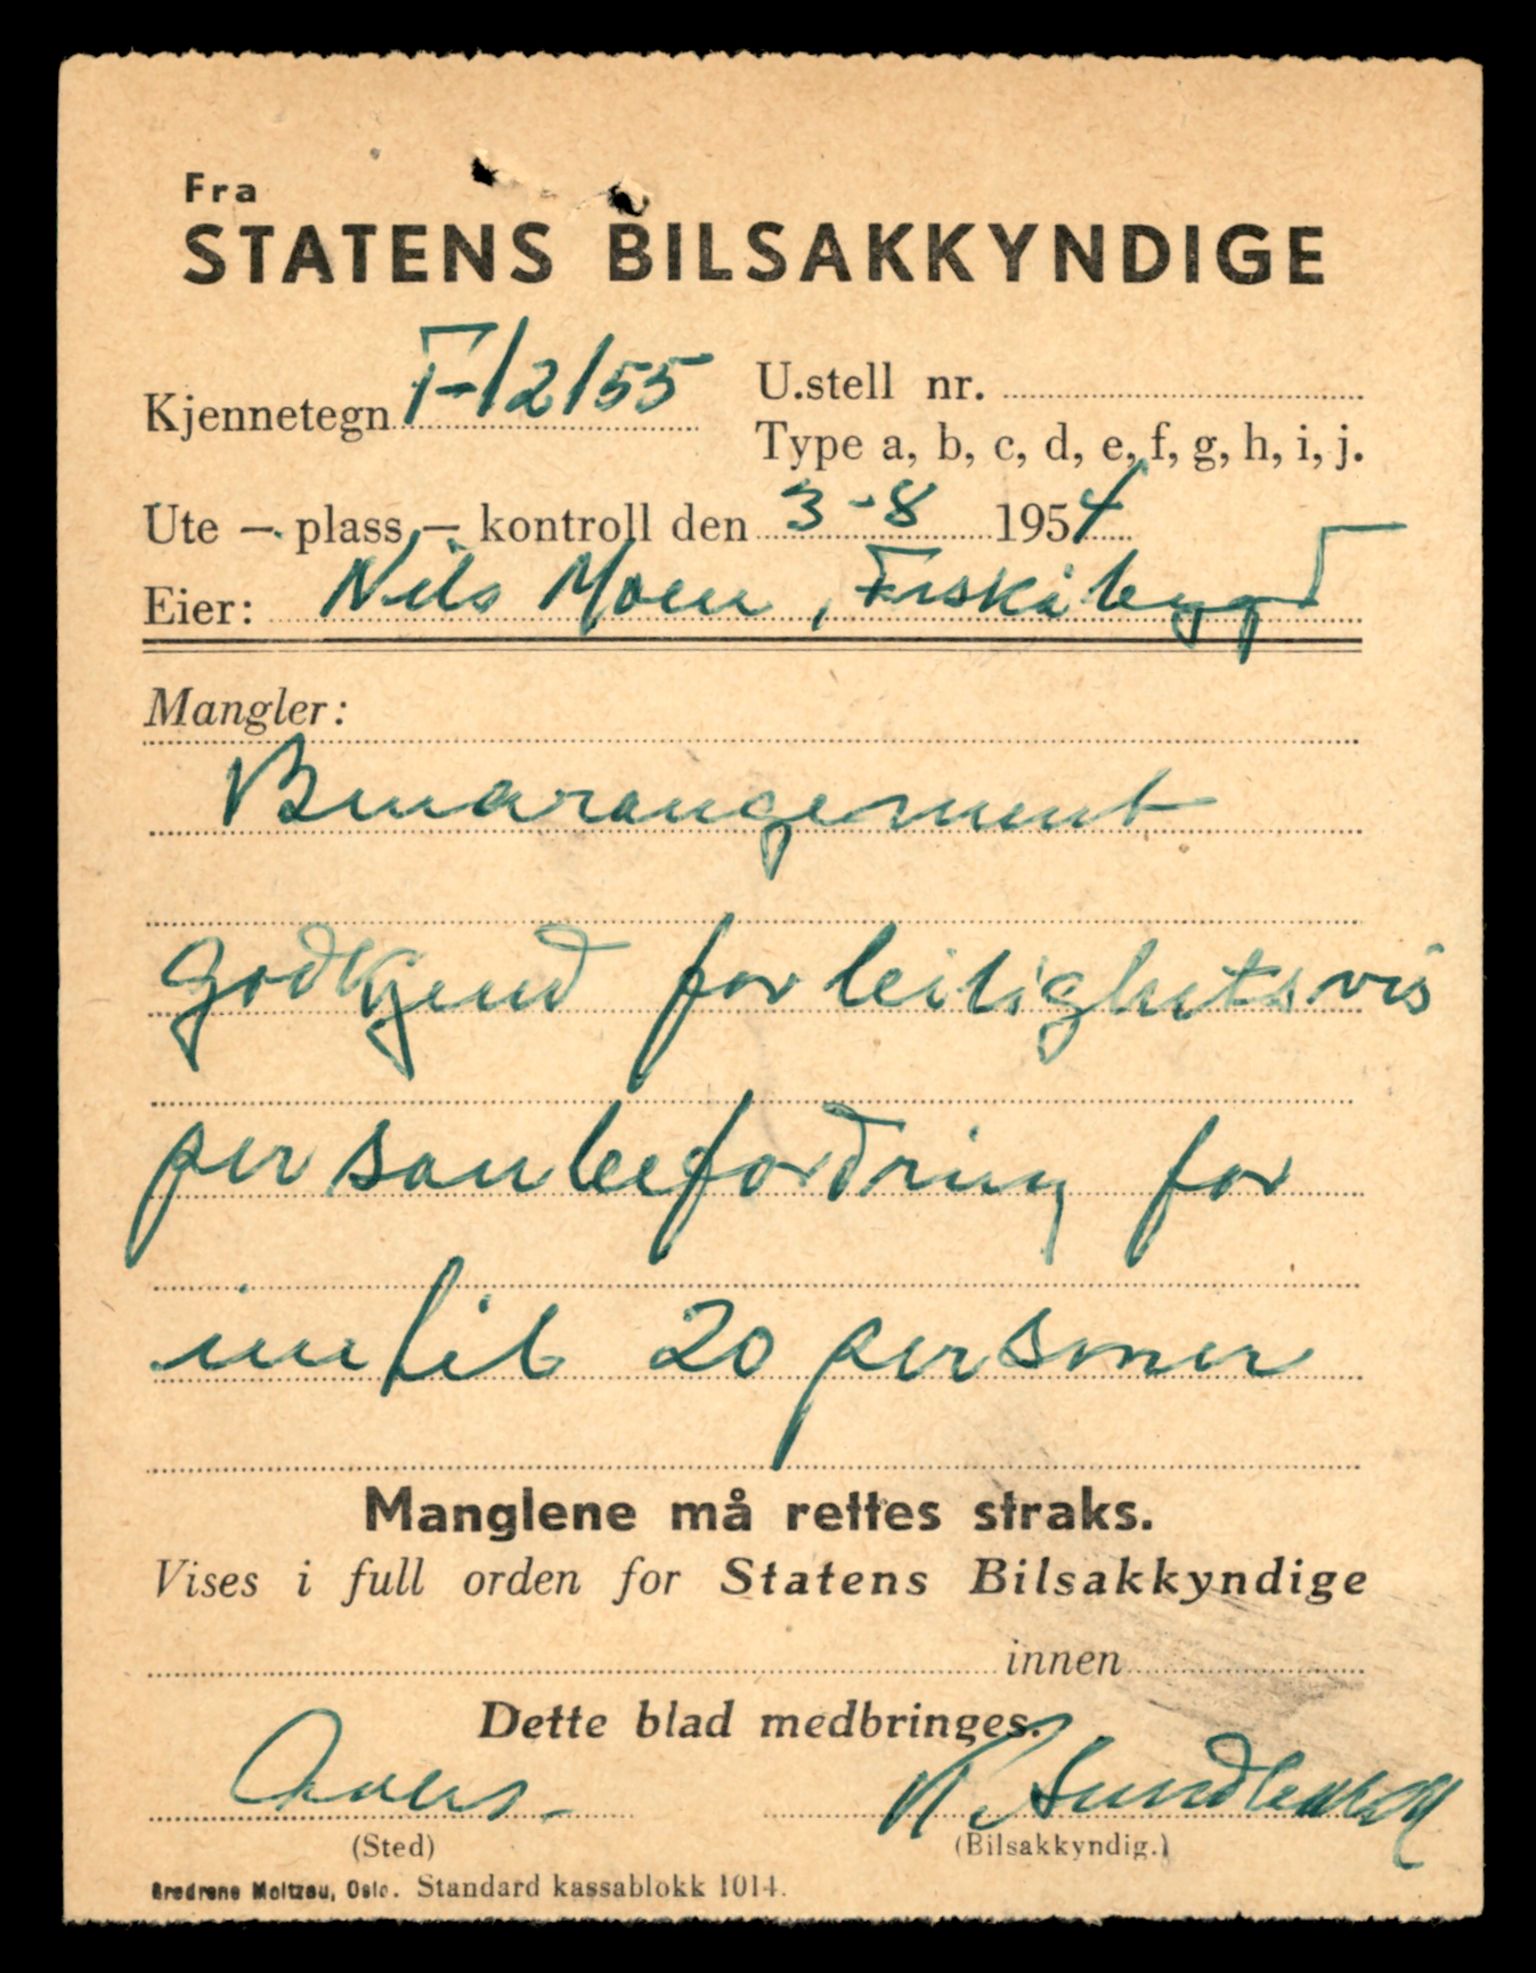 Fra
STATENS BILSAKKYNDIGE
Kjennetegn F-12155
U.stell nr.
Type a, b, c, d, e, f, g, h, i, j.
Ute – plass – kontroll den 3-8 1954
Eier: Nils Moen, Friskåbygd
Mangler:
arangement
godkjend for leilighetsvis
personbefordring for
inntil 20 personer
Manglene må rettes straks.
Vises i full orden for Statens Bilsakkyndige
innen
Dette blad medbringes.
(Sted)
(Bilsakkyndig.)
Brødrene Moltzau, Oslo. Standard kassablokk 1014.